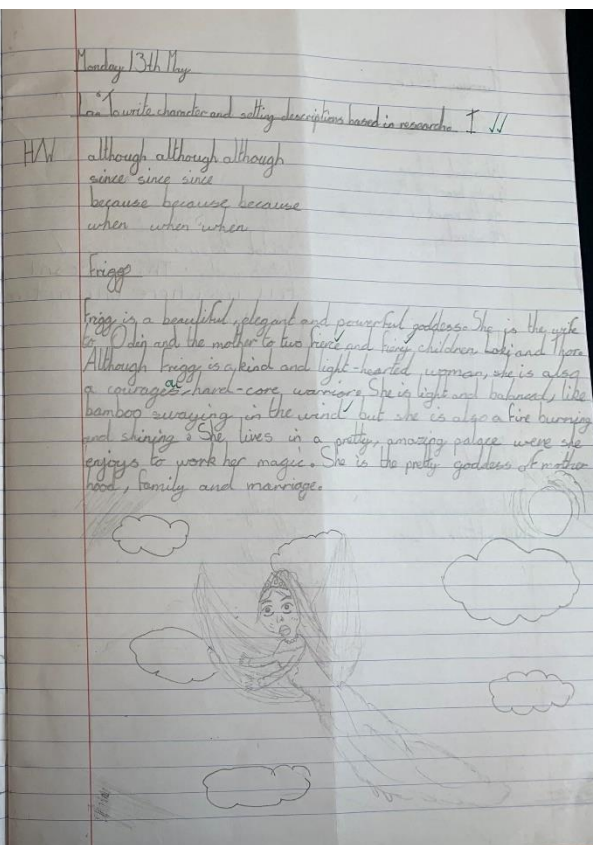 Monday 13th May
Lo: To write character and setting descriptions based in researche I
H/W although although although
since since since
because because because
when when when
Frigg
Frigg is a beautiful, elegant and powerful goddess. She is the wife
to Odin and the mother to two fierce and firey children Loki and Thor.
Although Frigg is a kind and light-hearted woman, she is also
a courages, hard-core warriore. She is light and balanced, like
bamboo swaying in the wind, but she is also a fire burning
and shining. She lives in a pretty, amazing palace were she
enjoys to work her magic. She is the pretty goddess of mother
hood, family and marriage.